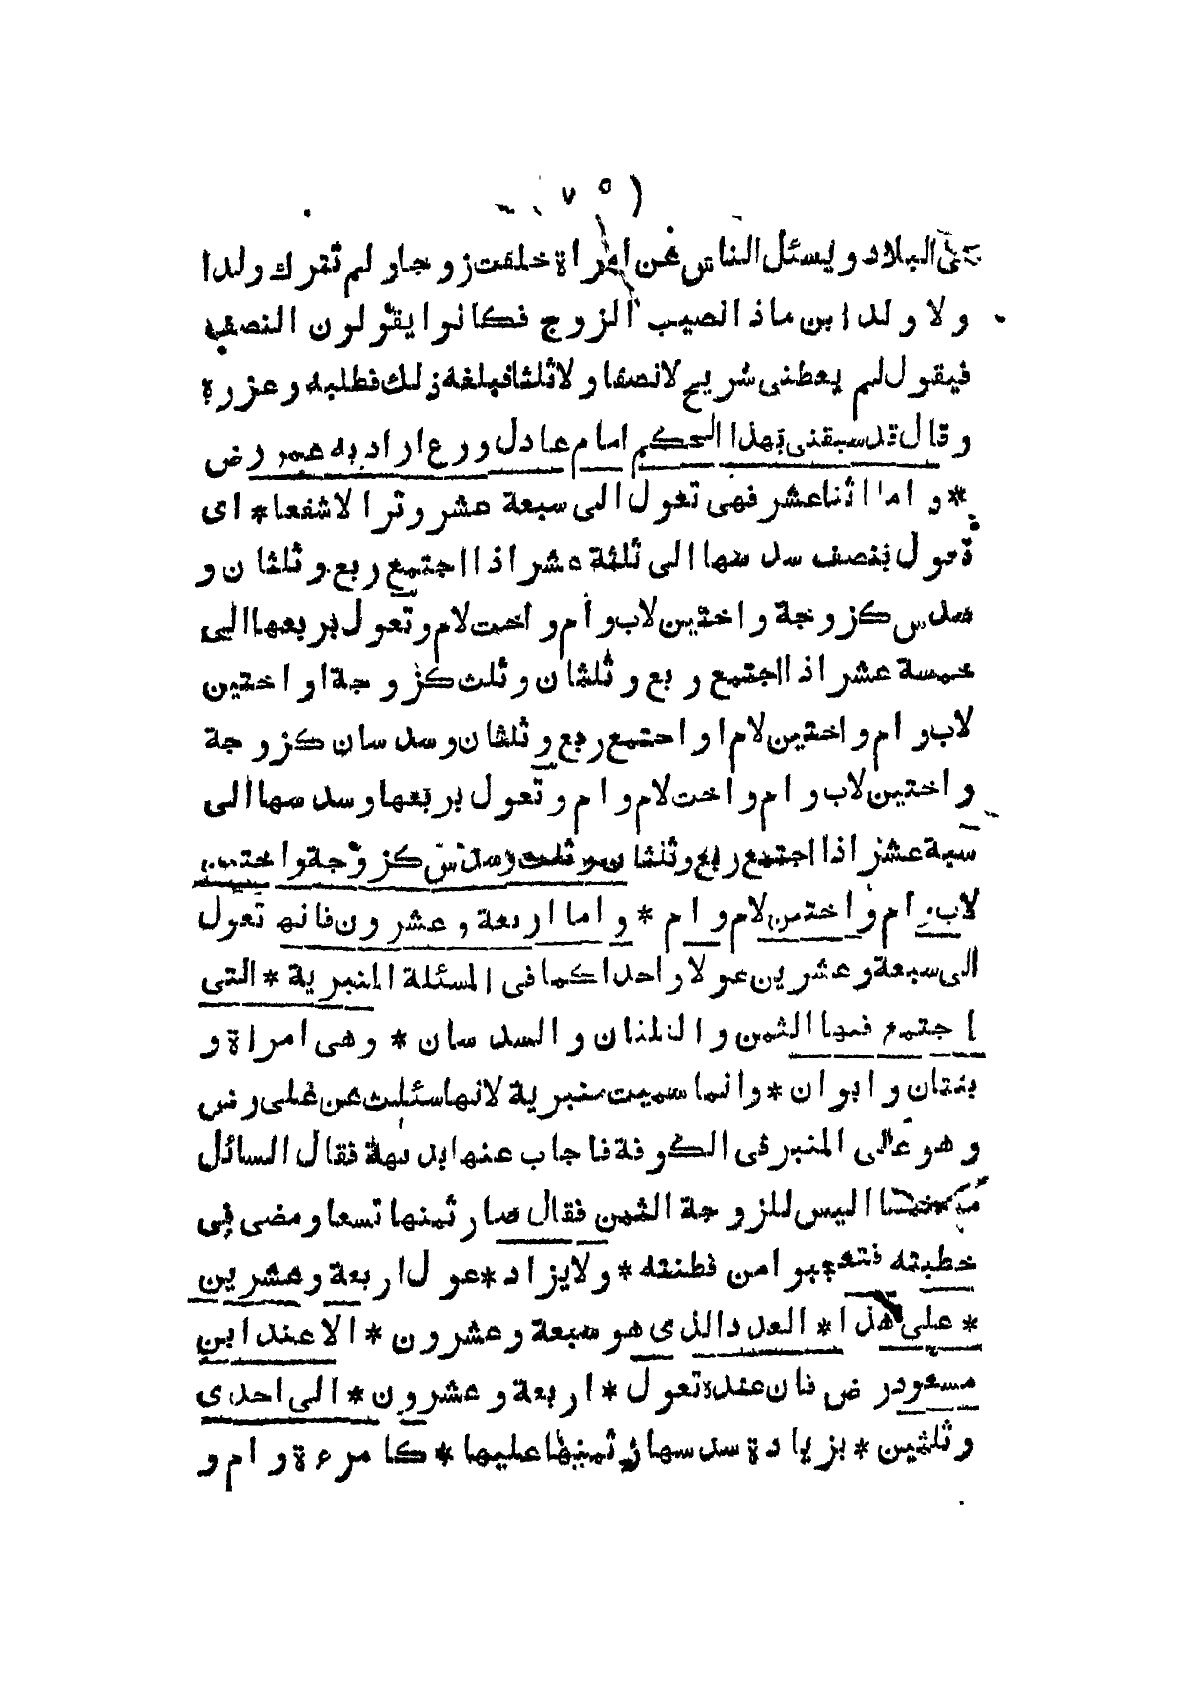 ( ٧٥
فى البلاد ويسئل الناس عن امراة خلفت زوجا ولم تترك ولدا
ولا ولد ابن ماذا نصيب الزوج فكانوا يقولون النصف
فيقول لم يعطنى شريح لا نصفا ولا ثلثا فبلغه ذلك فطلبه وعزره
وقال قد سبقنى بهذا الحكم امام عادل ورع اراد به عمر رض
* واما اثنا عشر فهى تعول الى سبعة عشر وترا لا شفعا * اى
تعول بنصف سدسها الى ثلثة عشر اذا اجتمع ربع وثلثان و
سدس كزوجة واختين لاب وام واخت لام وتعول بربعها الى
خمسة عشر اذا اجتمع ربع وثلثان وثلث كزوجة واختين
لاب وام واختين لام او اجتمع ربع وثلثان وسدسان كزوجة
واختين لاب وام واخت لام وام وتعول بربعها وسدسها الى
سبعة عشر اذا اجتمع ربع وثلثان وثلث وسدس كزوجة واختين
لاب وام واختين لام وام * واما اربعة وعشرون فانها تعول
الى سبعة وعشرين عولا واحدا كما فى المسئلة المنبرية * التى
اجتمع فيها الثمن والثلثان والسدسان * وهى امراة و
بنتان وابوان * وانما سميت منبرية لانها سئلت عن على رض
وهو على المنبر فى الكوفة فاجاب عنها بديهة فقال السائل
اليس للزوجة الثمن فقال صار ثمنها تسعا ومضى فى
خطبته فتعجبوا من فطنته * ولا يزاد * عول اربعة وعشرين
* على هذا * العدد الذى هو سبعة وعشرون * الا عند ابن
مسعود رض فان عنده تعول * اربعة وعشرون * الى احدى
وثلثين * بزيادة سدسها وثمنها عليها * كامرءة وام و